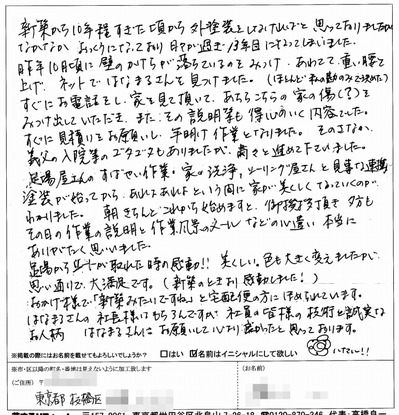 新築から10年程すぎた頃から外塗装をしなければと思っておりましたが
なかなか おっくうになっており 日々が過ぎ13年目になってしまいました。
昨年10月頃に壁のかけらが落ちているのをみつけ、あわてて重い腰を
上げ ネットではなまるさんを見つけました。(ほとんど私の勘のみで決めた)
すぐにお電話をし、家を見て頂いて、あちらこちらの家の傷(?)を
みつけ出していただき、また、その説明等も得心のいく内容でした。
すぐに見積りをお願いし、年明け作業となりました。そのさなか、
義父の入院等のゴタゴタもありましたが、着々と進めて下さいました。
足場屋さんのすばやい作業・家の洗浄、シーリング屋さんと見事な連携
塗装が始ってから、あれよあれよという間に家が美しくなっていくのが
わかりました。 朝きちんとこれから始めますと、御挨拶頂き 夕方も
その日の作業の説明と作業風景のメールなどの心遣い 本当に
ありがたく思いました。
足場からシートが取れた時の感動!! 美しい。色も大きく変えましたが、
思い通りで、大満足です。(新築のときより感動しました!)
おかげ様で「新築みたいですね」と宅配便の方にほめられています。
はなまるさんの社長様はもちろんですが 社員の皆様の技術と誠実な
お人柄 はなまるさんにお願いして心より良かったと思っております。
※掲載の際にはお名前を載せてもよろしいでしょうか? □はい ☑名前はイニシャルにして欲しい
※市・区以降の町名・番地は見えないように加工致します
(ご住所) 〒
(お名前)
東京都 板橋区